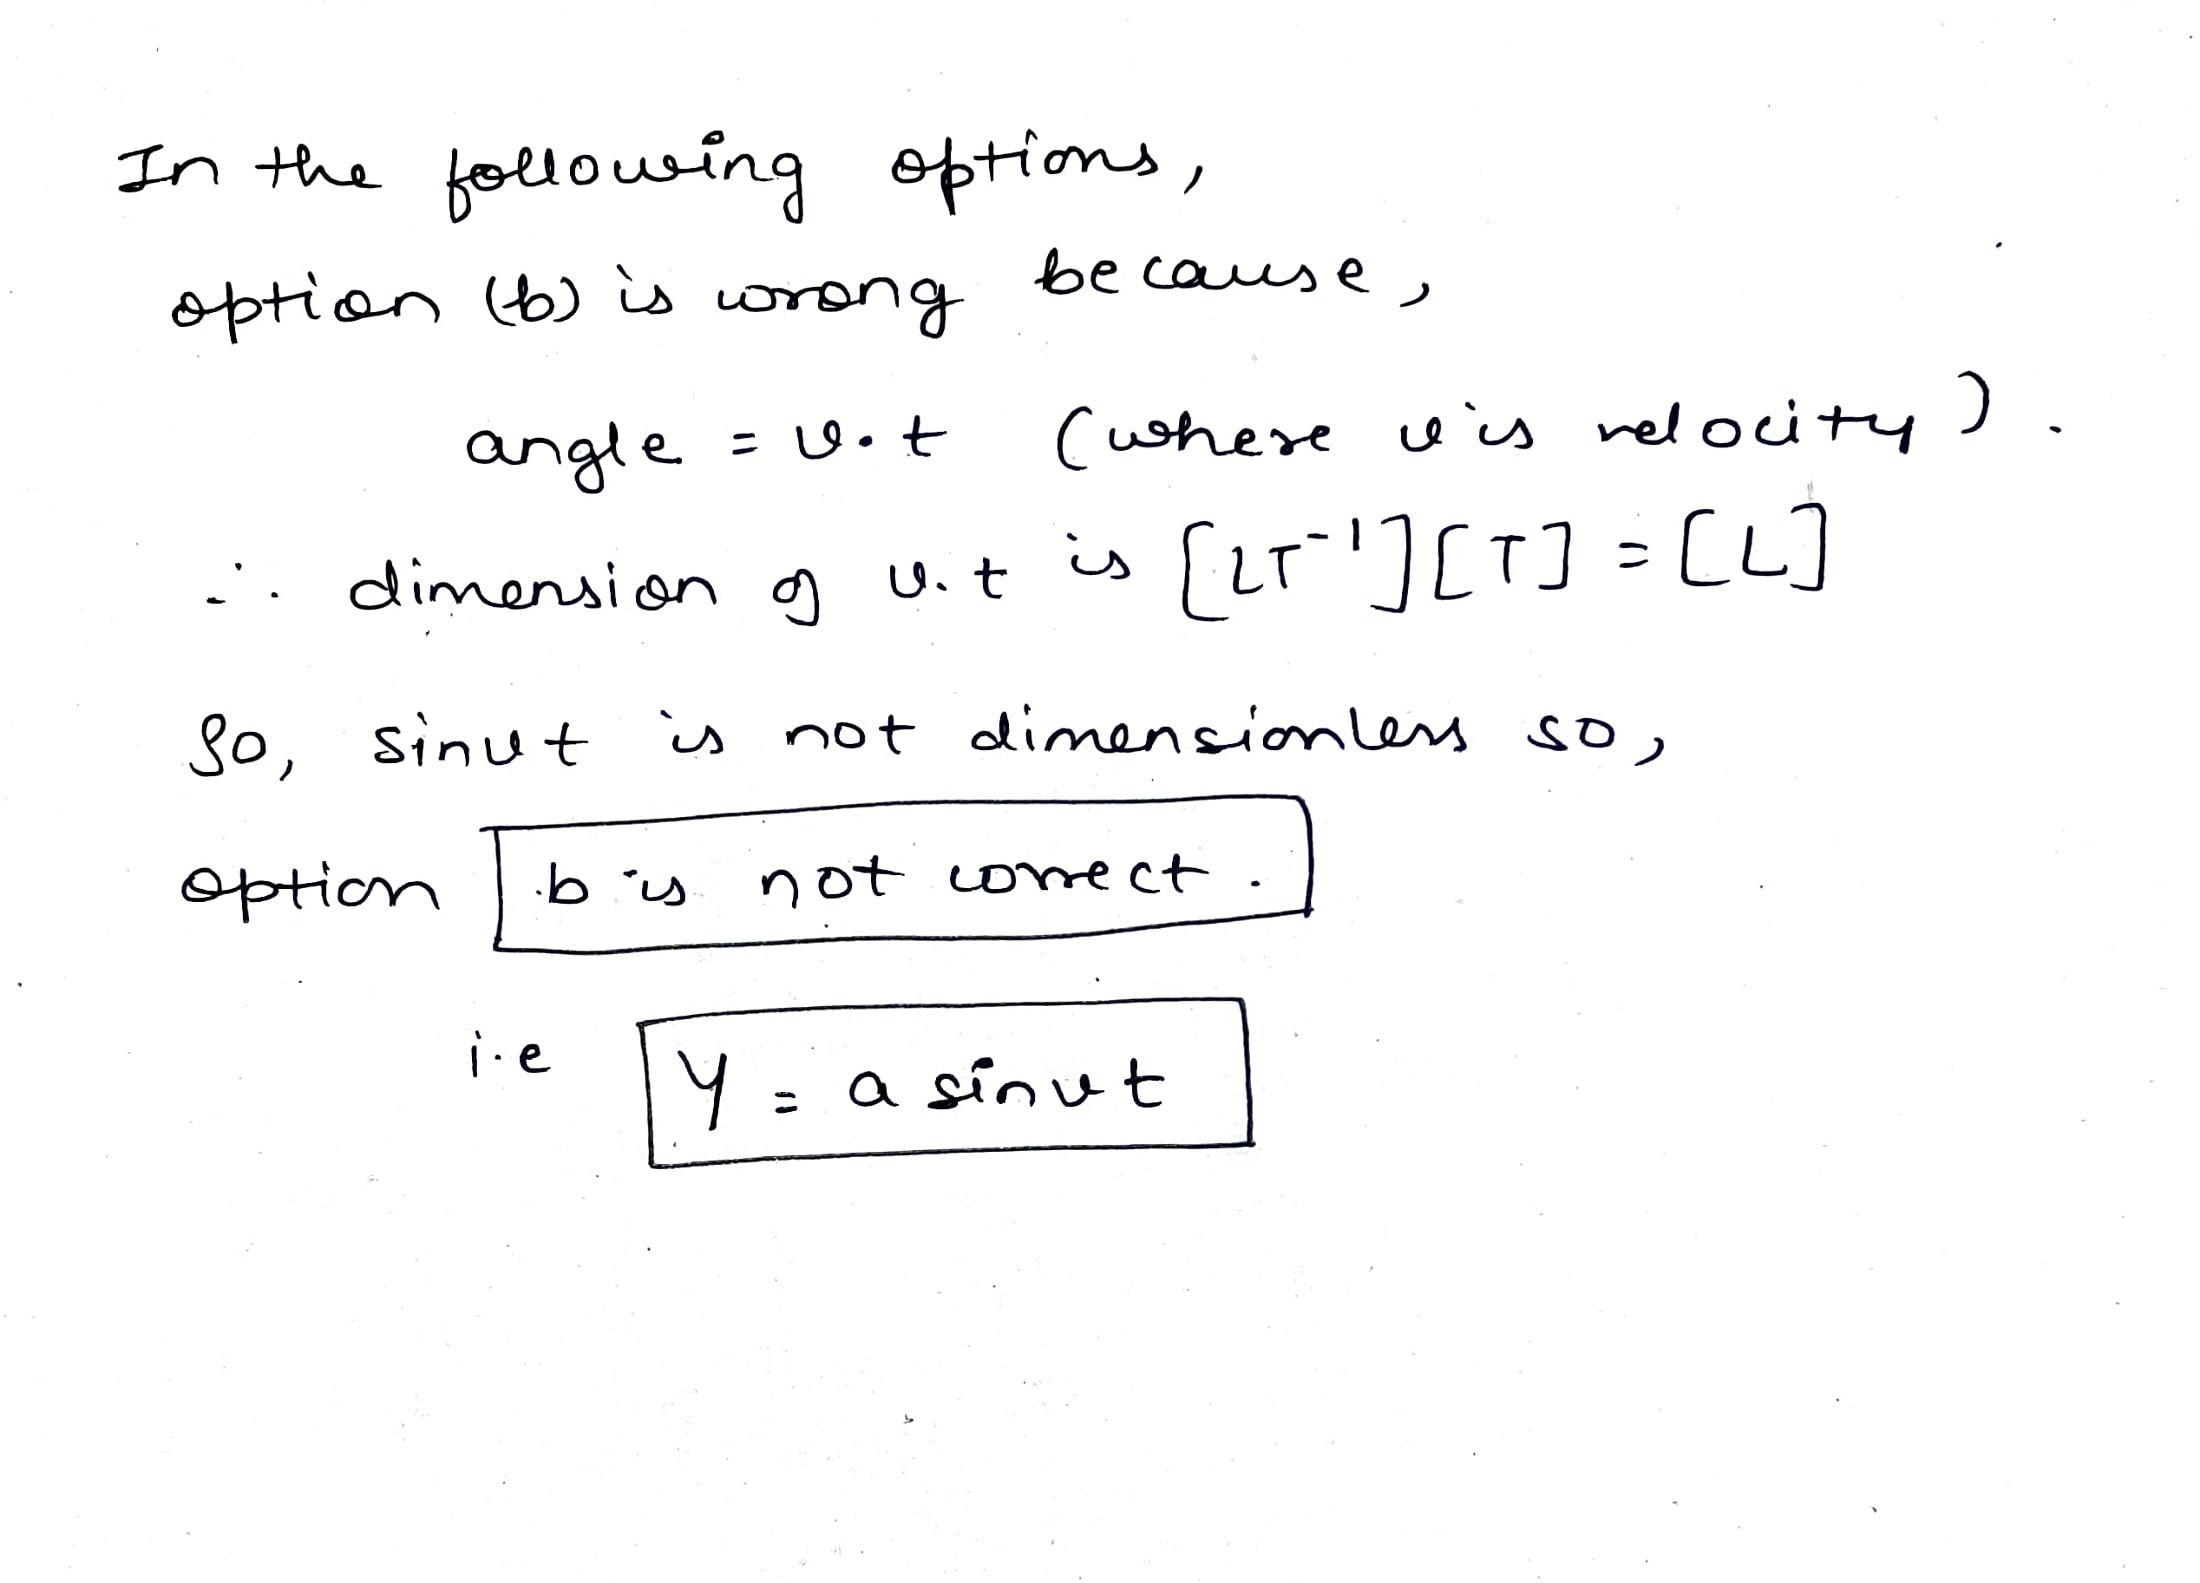 In the following options,
option (b) is wrong because,
angle = v.t (where v is velocity).
∴ dimension of v.t is [LT⁻¹][T] = [L]
So, sinvt is not dimensionless so,
option b is not correct.
i.e Y = a sinvt